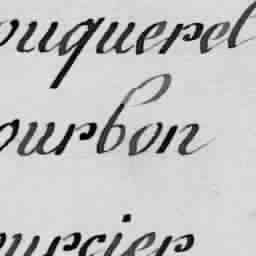 ouquerel
ourbon
ourcier